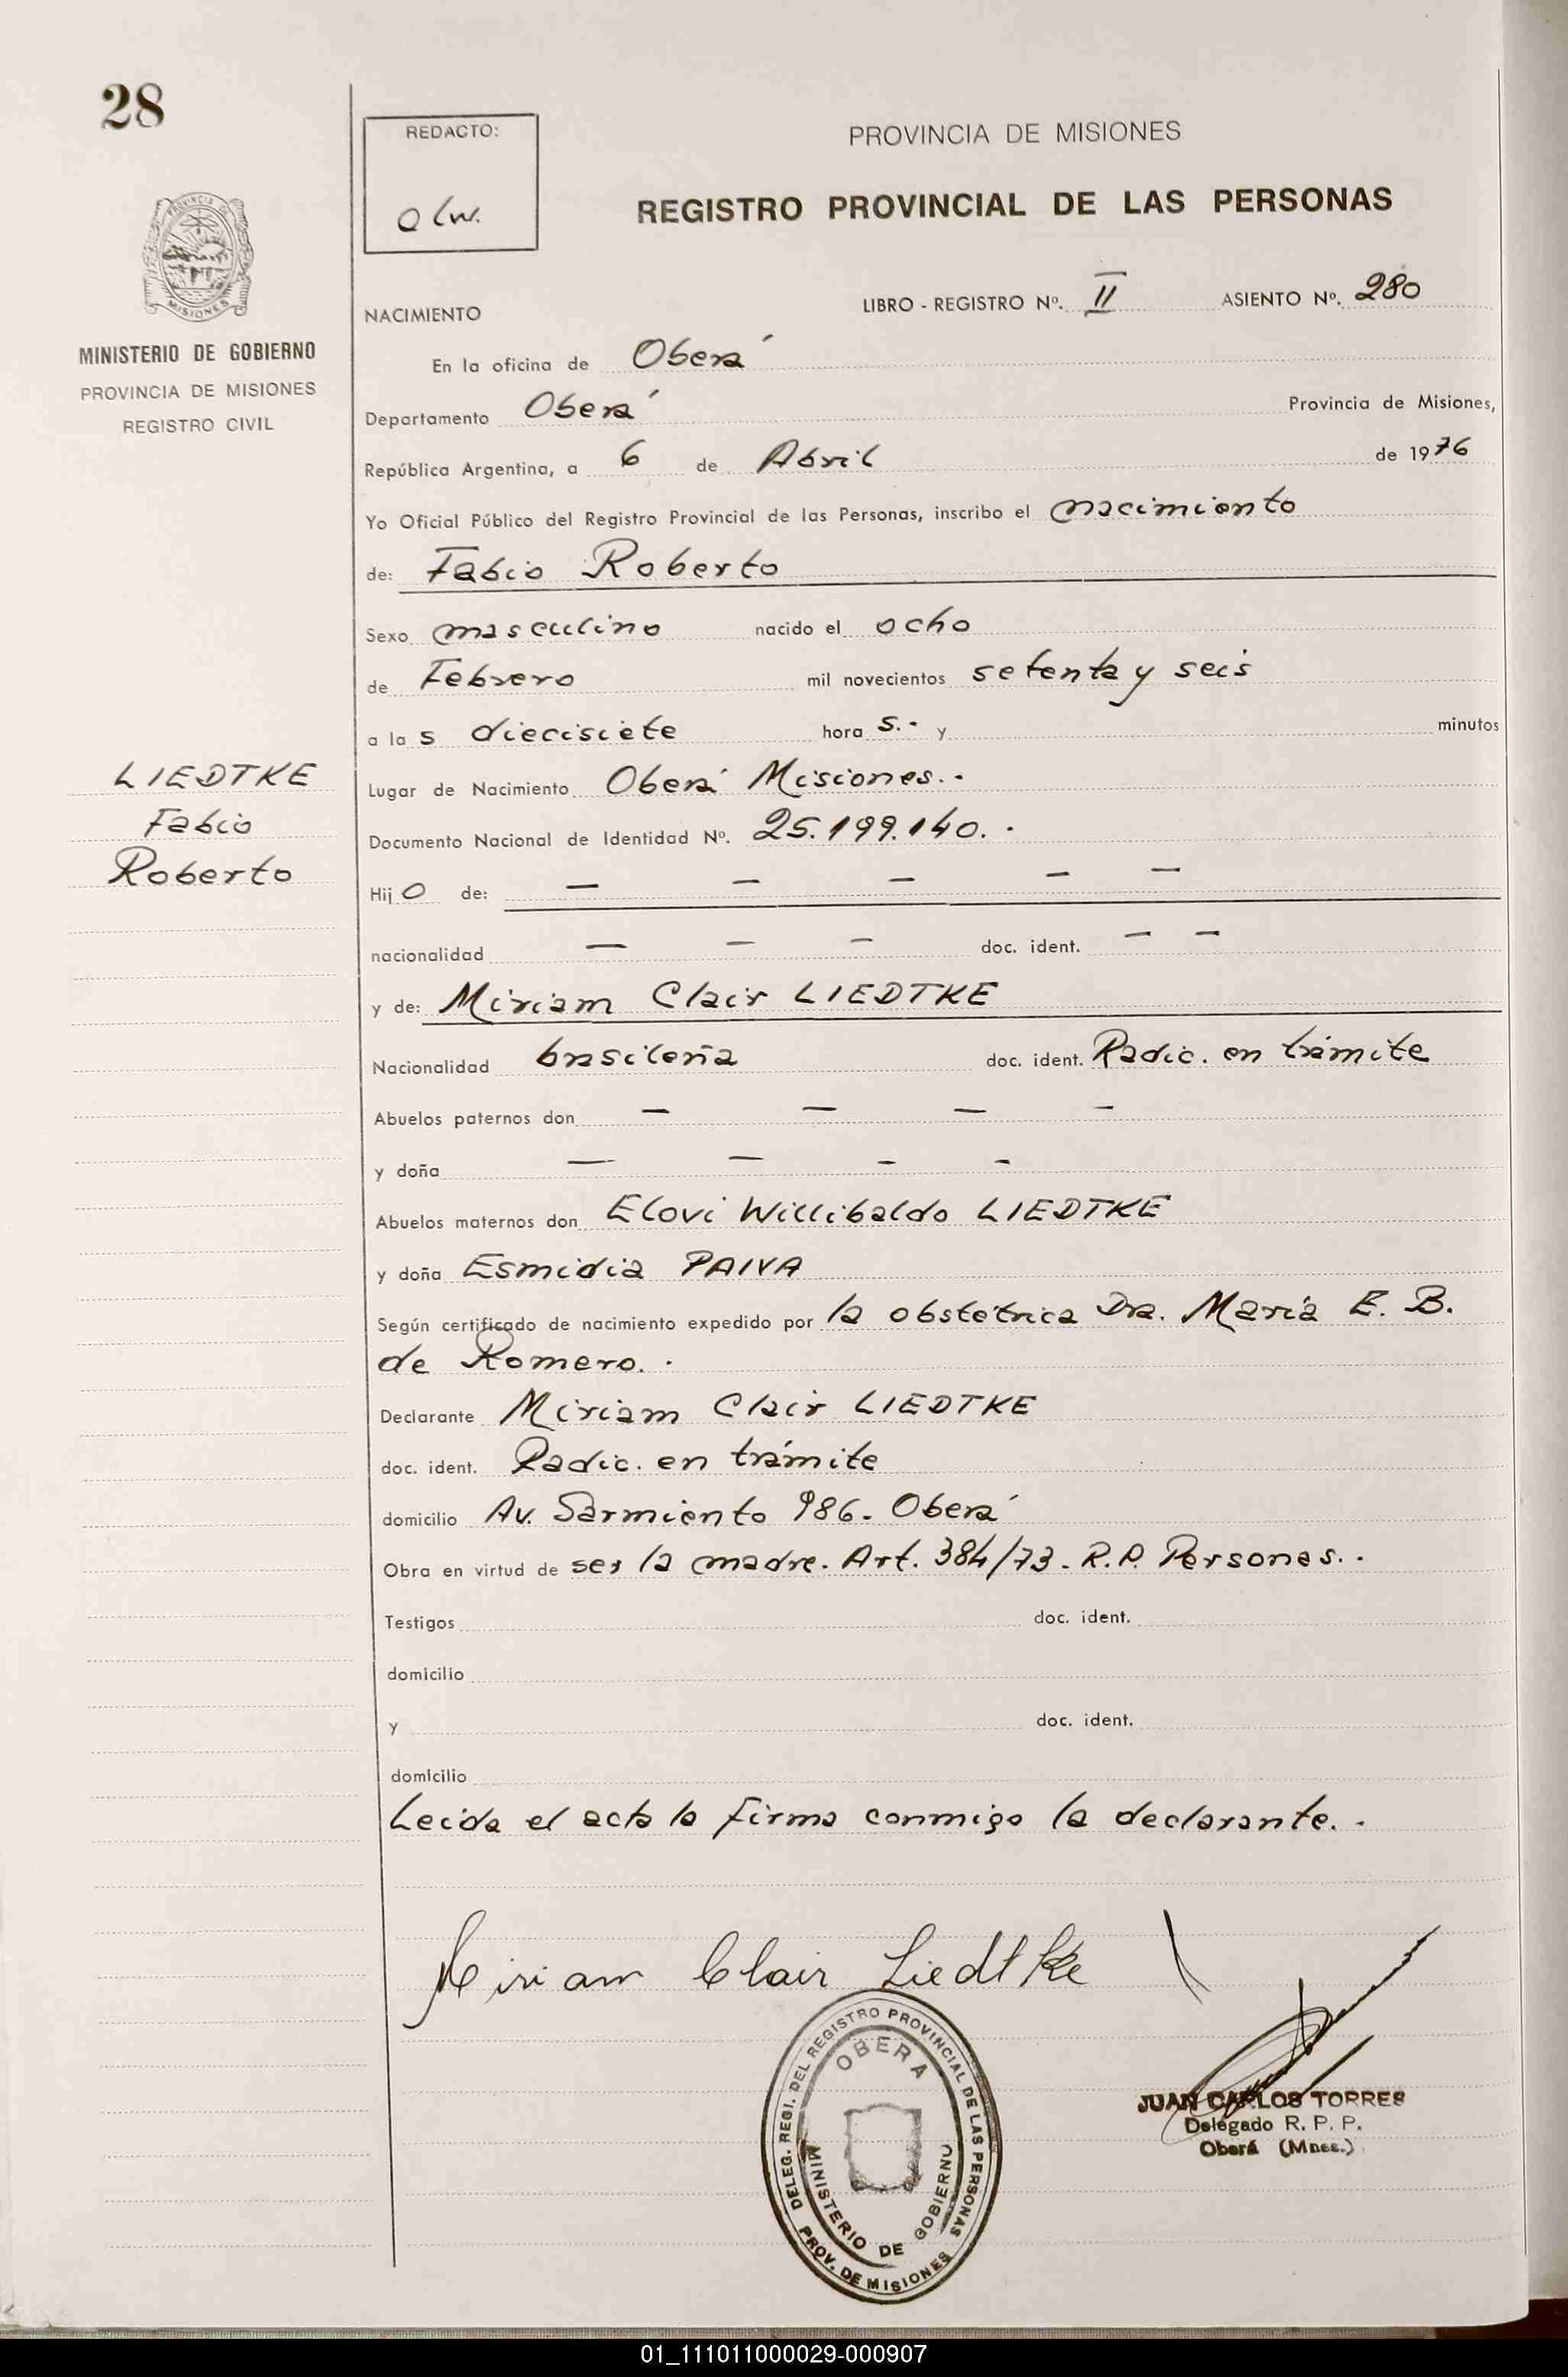 28
REDACTO:
PROVINCIA DE MISIONES
olw.
REGISTRO PROVINCIAL DE LAS PERSONAS
MISIONES
MINISTERIO DE GOBIERNO
PROVINCIA DE MISIONES
REGISTRO CIVIL
NACIMIENTO LIBRO - REGISTRO Nº. II ASIENTO Nº. 280
En la oficina de Oberá
Departamento Oberá Provincia de Misiones,
República Argentina, a 6 de Abril de 1976
Yo Oficial Público del Registro Provincial de las Personas, inscribo el nacimiento
de: Fabio Roberto
Sexo masculino nacido el ocho
de Febrero mil novecientos setenta y seis
a las diecisiete horas.- y minutos
LIEDTKE
Fabio
Roberto
Lugar de Nacimiento Oberá Misiones.-
Documento Nacional de Identidad Nº. 25.199.140.-
Hijo de: — — — — —
nacionalidad — — — doc. ident. — —
y de: Miriam Clair LIEDTKE
Nacionalidad brasileña doc. ident. Radic. en trámite
Abuelos paternos don — — — -
y doña — — - -
Abuelos maternos don Elovi Willibaldo LIEDTKE
y doña Esmidia PAIVA
Según certificado de nacimiento expedido por la obstétrica Dra. María E. B.
de Romero.-
Declarante Miriam Clair LIEDTKE
doc. ident. Radic. en trámite
domicilio Av. Sarmiento 986. Oberá
Obra en virtud de ser la madre. Art. 384/73. R.P. Personas.-
Testigos doc. ident.
domicilio
y doc. ident.
domicilio
Leida el acta la firma conmigo la declarante.-
Miriam Clair Liedtke
DELEG. REGI. DEL REGISTRO PROVINCIAL DE LAS PERSONAS
OBERA
MINISTERIO DE GOBIERNO
PROV. DE MISIONES
JUAN CARLOS TORRES
Delegado R. P. P.
Oberá (Mnes.)
01_111011000029-000907